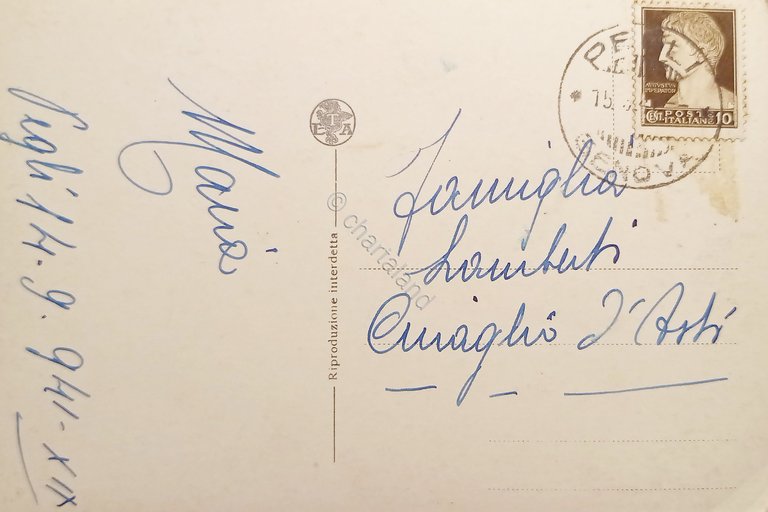 Maria
Pegli 14.9.941-XIX
ETA
Riproduzione interdetta
© chartaland
Famiglia
Lamberti
Cinaglio d'Asti
PEGLI
15.
GENOVA
AVGVSTVS
IMPERATOR
CENT. POSTE ITALIANE 10